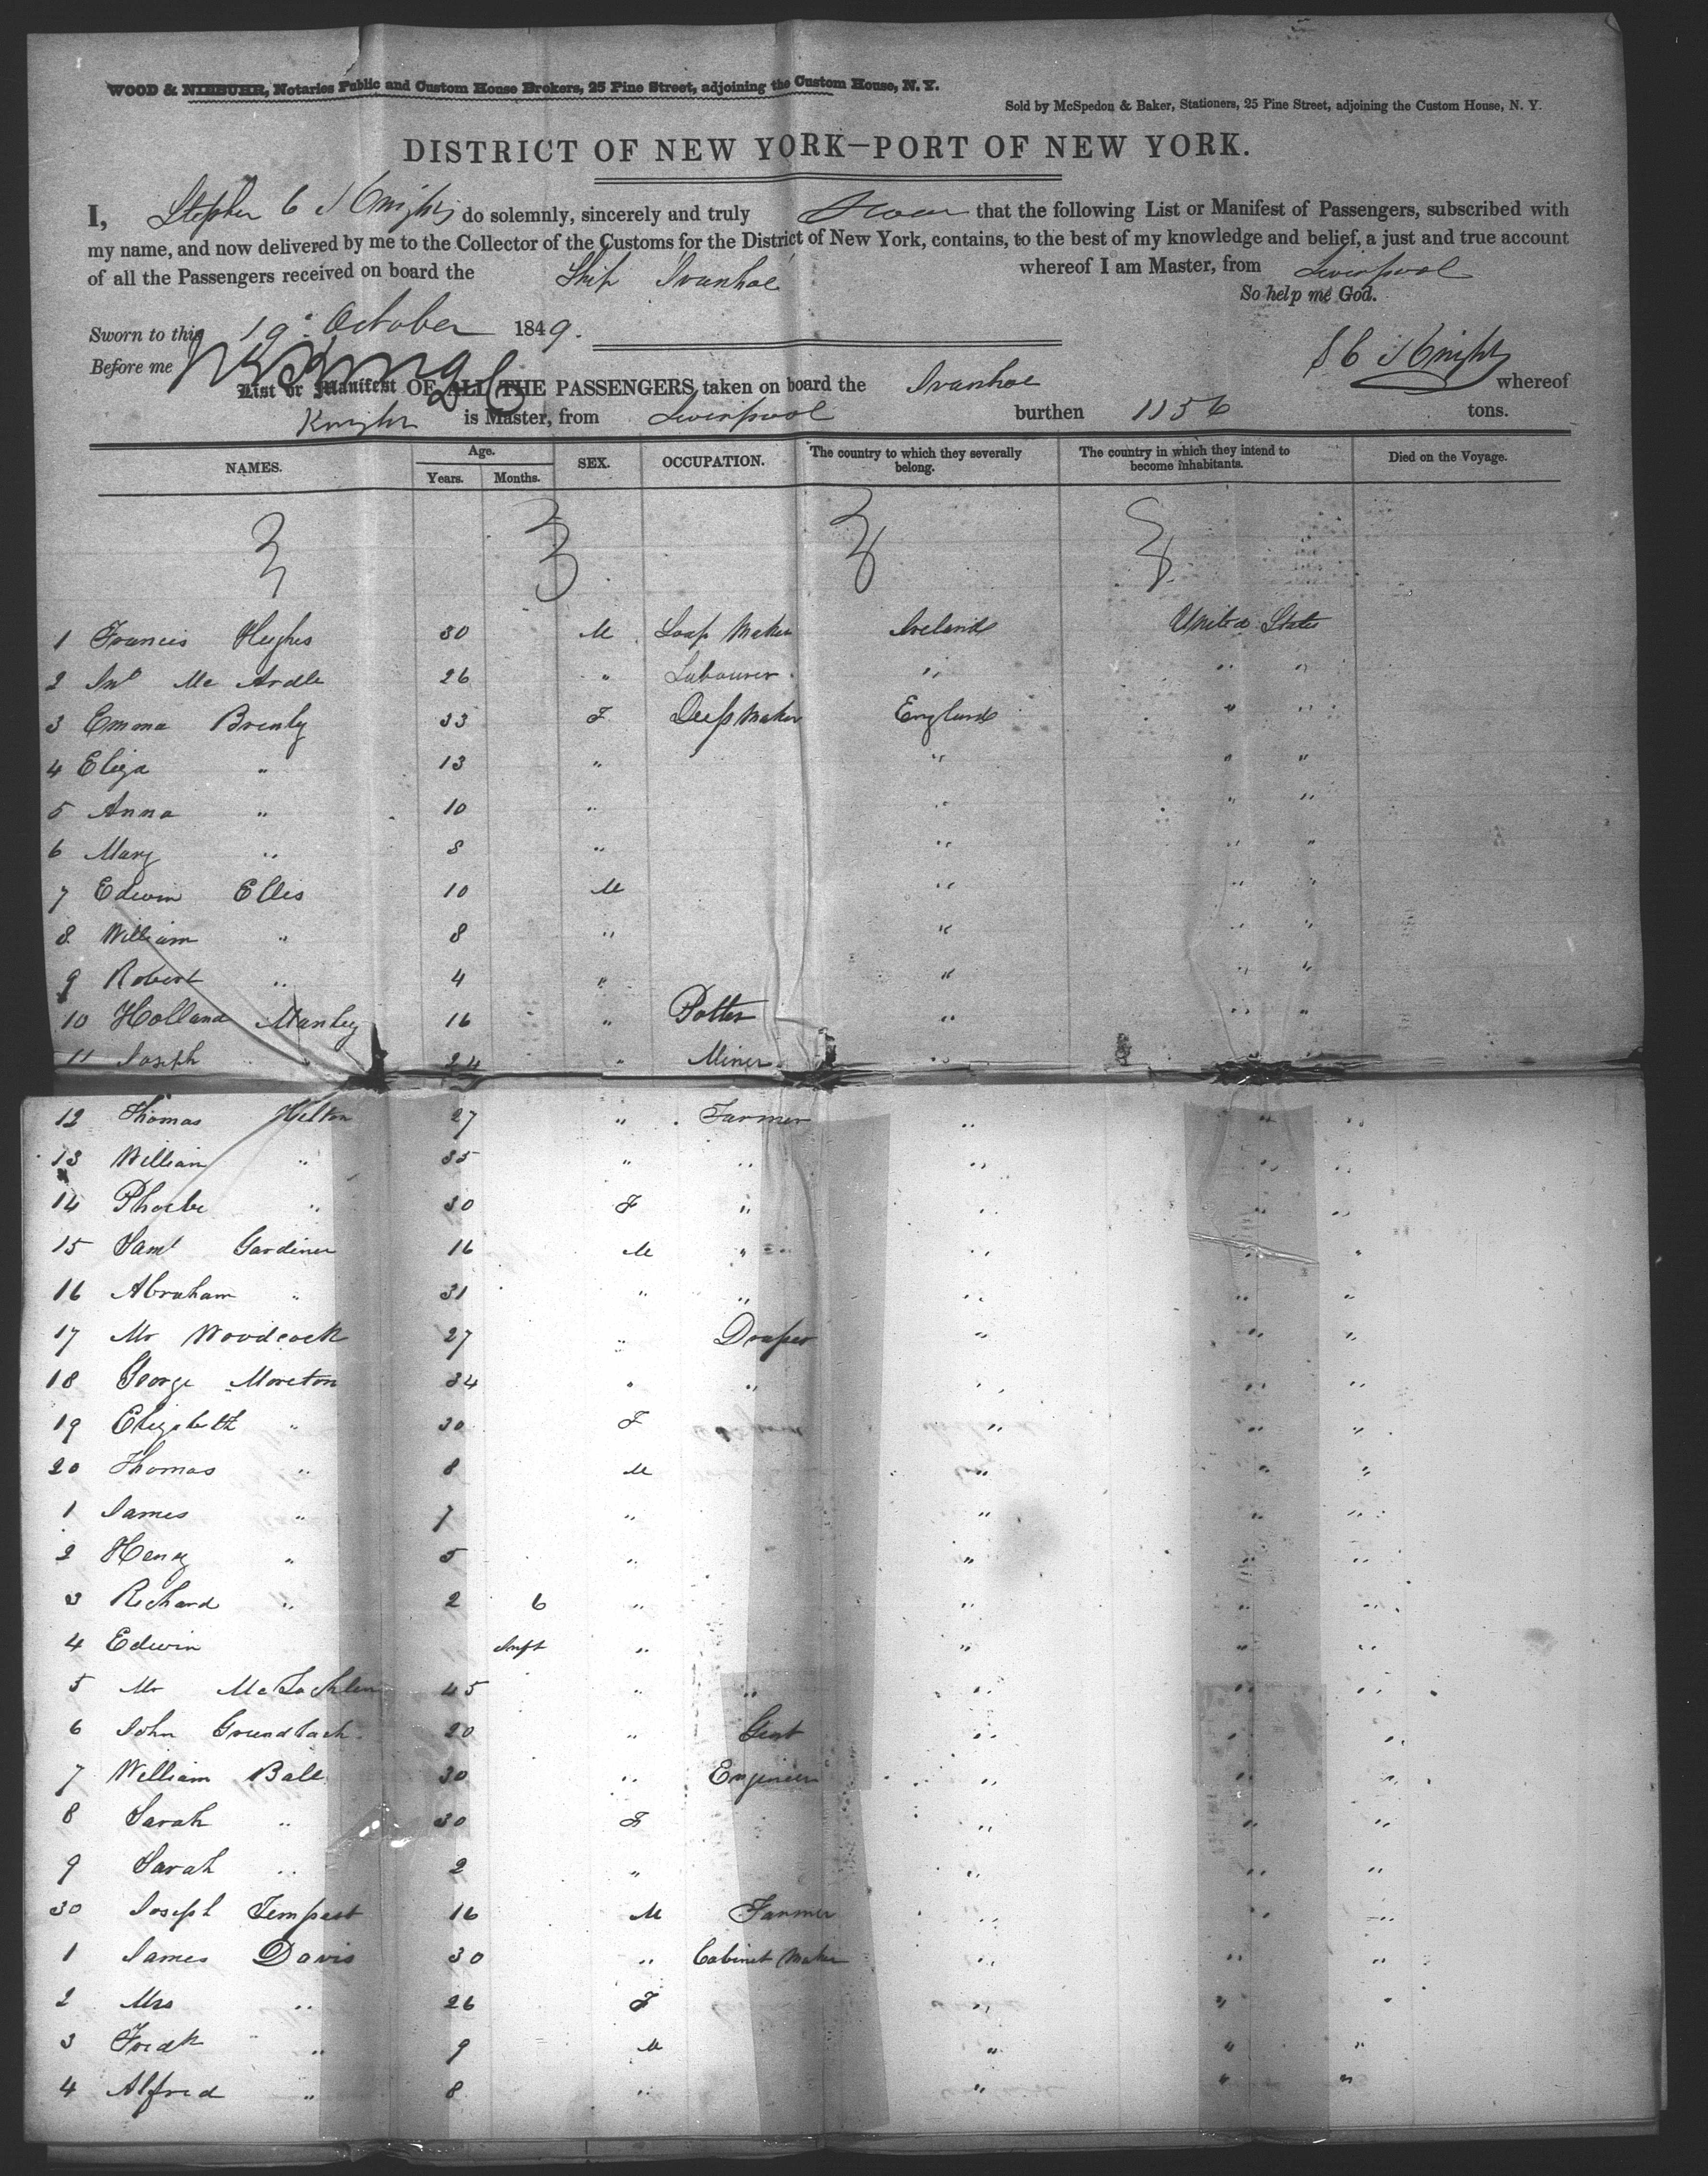 WOOD & NIEBUHR, Notaries Public and Custom House Brokers, 25 Pine Street, adjoining the Custom House, N. Y.
Sold by McSpedon & Baker, Stationers, 25 Pine Street, adjoining the Custom House, N. Y.
DISTRICT OF NEW YORK—PORT OF NEW YORK.
I, Stephen C Knight do solemnly, sincerely and truly Swear that the following List or Manifest of Passengers, subscribed with
my name, and now delivered by me to the Collector of the Customs for the District of New York, contains, to the best of my knowledge and belief, a just and true account
of all the Passengers received on board the Ship Ivanhoe whereof I am Master, from Liverpool
So help me God.
Sworn to this 19 October 1849.
Before me
S C Knight
List or Manifest OF ALL THE PASSENGERS taken on board the Ivanhoe whereof
Knight is Master, from Liverpool burthen 1156 tons.
NAMES. Age. Years. Months. SEX. OCCUPATION. The country to which they severally belong. The country in which they intend to become inhabitants. Died on the Voyage.
1 Francis Hughes 30 M Soap Maker Ireland United States
2 Jno Mc Ardle 26 " Labourer " " "
3 Emma Brenly 33 F Dress Maker England " "
4 Eliza " 13 " " " "
5 Anna " 10 " " " "
6 Mary " 8 " " " "
7 Edwin Ellis 10 M " " "
8 William " 8 " " " "
9 Robert " 4 " " " "
10 Holland Manley 16 " Potter " " "
11 Joseph " 24 " Miner " 
12 Thomas Helton 27 " Farmer " " "
13 William " 35 " " " " "
14 Phoebe " 30 F " " " "
15 Saml Gardiner 16 M " " " "
16 Abraham " 31 " " " " "
17 Mr Woodcock 27 " Draper " " "
18 George Moreton 34 " " " " "
19 Elizabeth " 30 F " " "
20 Thomas " 8 M " " "
1 James " 7 " " " "
2 Henry " 5 " " " "
3 Richard " 2 6 " " " "
4 Edwin Inft " " " "
5 Mr McLachlen 45 " " " " "
6 John Grundbach 20 " Gent " " "
7 William Ball 30 " Engineer " " "
8 Sarah " 30 F " " "
9 Sarah " 2 " " " "
30 Joseph Tempest 16 M Farmer " " "
1 James Davis 30 " Cabinet Maker " " "
2 Mrs " 26 F " " "
3 Fredk " 9 M " " "
4 Alfred " 8 " " " "